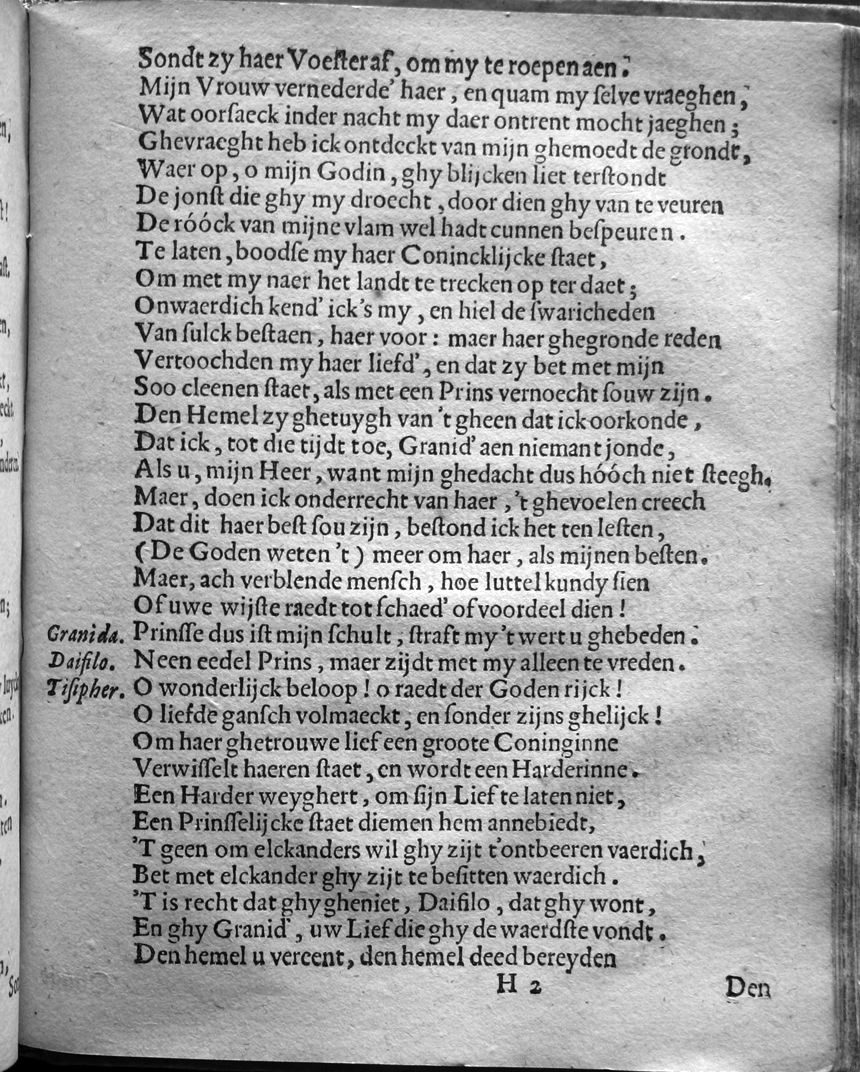 Sondt zy haer Voesteraf, om my te roepen aen;
Mijn Vrouw vernederde' haer, en quam my ſelve vraeghen,
Wat oorſaeck inder nacht my daer ontrent mocht jaeghen;
Ghevraeght heb ick ontdeckt van mijn ghemoedt de grondt,
Waer op, o mijn Godin, ghy blijcken liet terſtondt
De jonſt die ghy my droecht, door dien ghy van te veuren
De róóck van mijne vlam wel hadt cunnen beſpeuren.
Te laten, boodſe my haer Conincklijcke ſtaet,
Om met my naer het landt te trecken op ter daet;
Onwaerdich kend' ick's my, en hiel de ſwaricheden
Van ſulck beſtaen, haer voor: maer haer ghegronde reden
Vertoochden my haer liefd', en dat zy bet met mijn
Soo cleenen ſtaet, als met een Prins vernoecht ſouw zijn.
Den Hemel zy ghetuygh van 't gheen dat ick oorkonde,
Dat ick, tot die tijdt toe, Granid' aen niemant jonde,
Als u, mijn Heer, want mijn ghedacht dus hóóch niet ſteegh.
Maer, doen ick onderrecht van haer, 't ghevoelen creech
Dat dit haer beſt ſou zijn, beſtond ick het ten leſten,
(De Goden weten 't) meer om haer, als mijnen beſten.
Maer, ach verblende menſch, hoe luttel kundy ſien
Of uwe wijſte raedt tot ſchaed' of voordeel dien!
Granida. Prinſſe dus iſt mijn ſchult, ſtraft my 't wert u ghebeden.
Daifilo. Neen eedel Prins, maer zijdt met my alleen te vreden.
Tiſipher. O wonderlijck beloop! o raedt der Goden rijck!
O liefde ganſch volmaeckt, en ſonder zijns ghelijck!
Om haer ghetrouwe lief een groote Coninginne
Verwiſſelt haeren ſtaet, en wordt een Harderinne.
Een Harder weyghert, om ſijn Lief te laten niet,
Een Prinſſelijcke ſtaet diemen hem annebiedt,
'T geen om elckanders wil ghy zijt t'ontbeeren vaerdich,
Bet met elckander ghy zijt te beſitten waerdich.
'T is recht dat ghy gheniet, Daifilo, dat ghy wont,
En ghy Granid', uw Lief die ghy de waerdſte vondt.
Den hemel u vereent, den hemel deed bereyden
H 2 Den